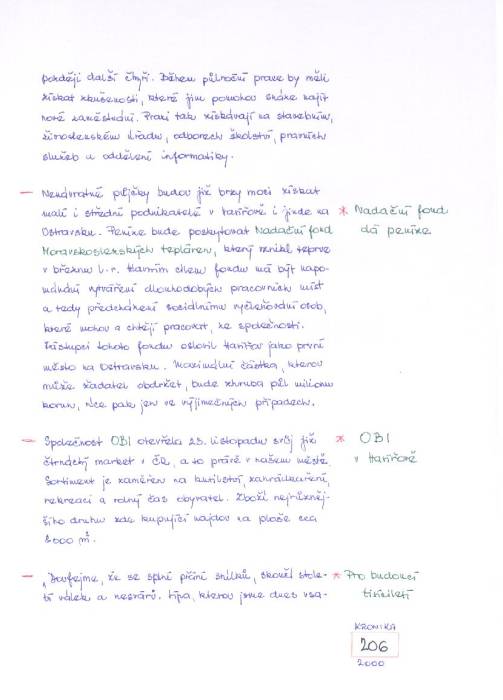 později další čtyři. Během půlroční praxe by měli
získat zkušenosti, které jim pomohou snáze najít
nové zaměstnání. Praxi tak získávají na stavebním,
živnostenském úřadu, odborech školství, právních
služeb a oddělení informatiky.
— Nenávratné půjčky budou již brzy moci získat
malí i střední podnikatelé v Havířově i jinde na
Ostravsku. Peníze bude poskytovat Nadační fond
Moravskoslezských tepláren, který vznikl teprve
v březnu t.r. Hlavním cílem fondu má být napo-
máhání vytváření dlouhodobých pracovních míst
a tedy předcházení sociálnímu vyčleňování osob,
které mohou a chtějí pracovat, ze společnosti.
Zástupci tohoto fondu oslovil Havířov jako první
město na Ostravsku. Maximální částka, kterou
může žadatel obdržet, bude zhruba půl milionu
korun, více pak jen ve výjimečných případech.
* Nadační fond
dá peníze
— Společnost OBI otevřela 23. listopadu svůj již
čtrnáctý market v ČR, a to právě v našem městě.
Sortiment je zaměřen na kutilství, zahrádkaření,
rekreaci a volný čas obyvatel. Zboží nejrůzněj-
šího druhu zde kupující najdou na ploše cca
8000 m².
* OBI
v Havířově
— „Doufejme, že se splní přání snílků, skončí stole-
tí válek a nesvárů. Lípa, kterou jsme dnes vsa-
* Pro budoucí
tisíciletí
KRONIKA
206
2000